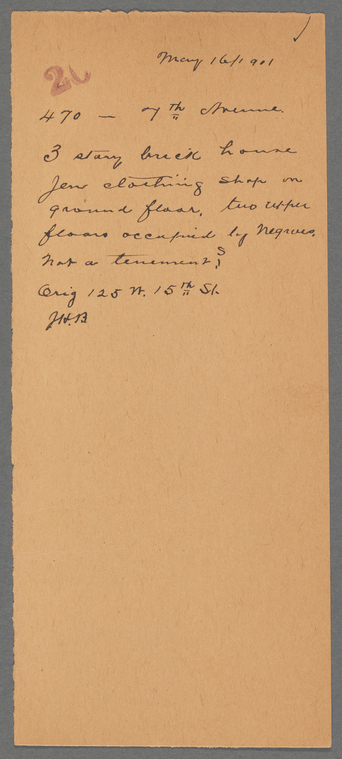 May 16/1901
20
470 — 7th Avenue.
3 story brick house
Jew clothing shop on
ground floor, two upper
floors occupied by Negroes.
Not a tenement,
Orig 125 W. 15th St.
JH.B